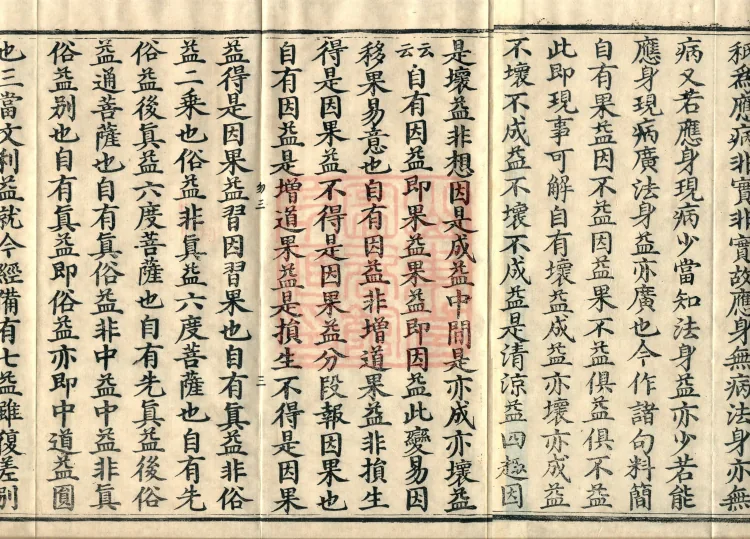 移爲應病非實非實故應身無病法身亦無
病又若應身現病少當知法身益亦少若能
應身現病廣法身益亦廣也今作諸句料簡
自有果益因不益因益果不益俱益俱不益
此即現事可解自有壞益成益亦壞亦成益
不壞不成益不壞不成益是清涼益四趣因
是壞益非想因是成益中間是亦成亦壞益
云云自有因益即果益果益即因益此變易因
移果易意也自有因益非增道果益非損生
得是因果益不得是因果益分段報因果也
自有因益是增道果益是損生不得是因果
勿三
三
益得是因果益習因習果也自有真益非俗
益二乘也俗益非真益六度菩薩也自有先
俗益後真益六度菩薩也自有先真益後俗
益通菩薩也自有真俗益非中益中益非真
俗益別也自有真益即俗益亦即中道益圓
也三當文判益就今經備有七益雖復差別